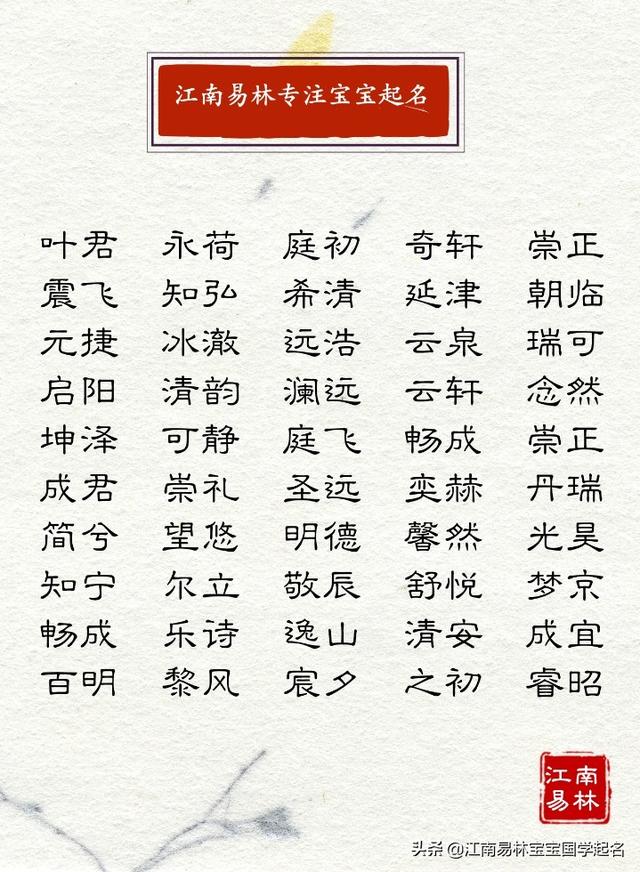 江南易林专注宝宝起名
叶君 永荷 庭初 奇轩 崇正
震飞 知弘 希清 延津 朝临
元捷 冰澈 远浩 云泉 瑞可
启阳 清韵 澜远 云轩 念然
坤泽 可静 庭飞 畅成 崇正
成君 崇礼 圣远 奕赫 丹瑞
简兮 望悠 明德 馨然 光昊
知宁 尔立 敬辰 舒悦 梦京
畅成 乐诗 逸山 清安 成宜
百明 黎风 宸夕 之初 睿昭
江南
易林
头条 @江南易林宝宝国学起名